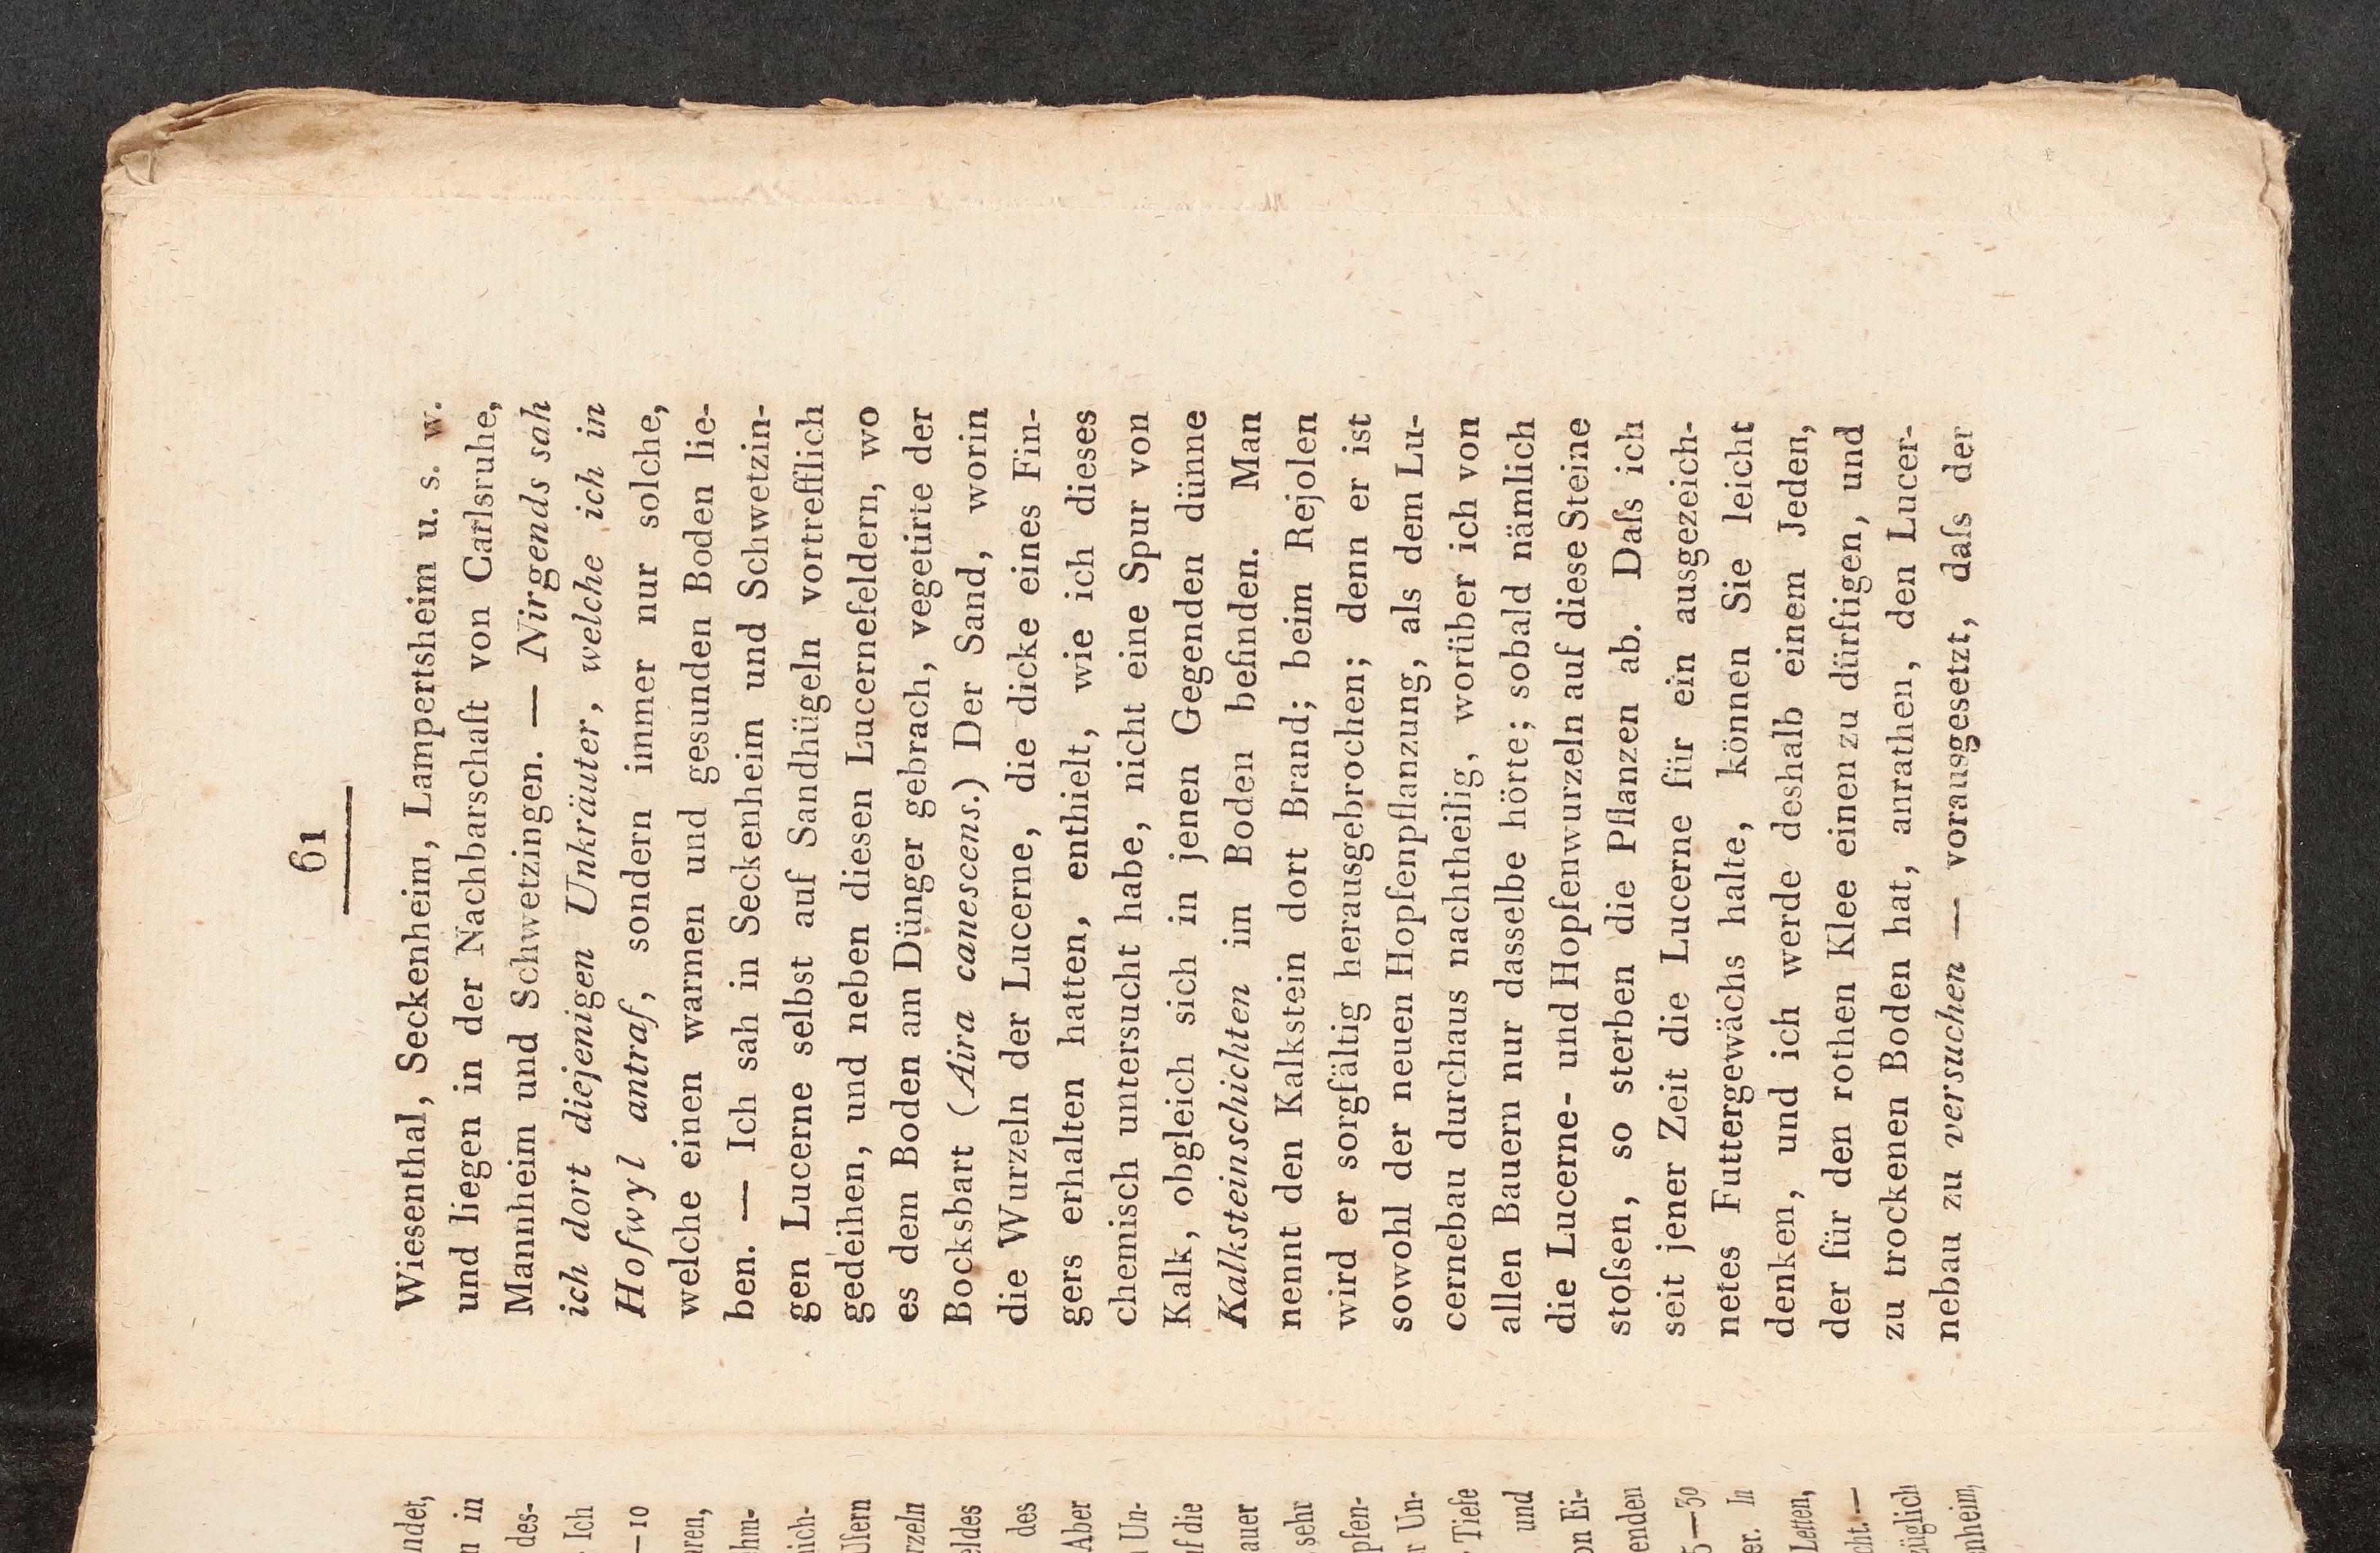 61
Wiesenthal, Seckenheim, Lampertsheim u. s. w.
und liegen in der Nachbarschaft von Carlsruhe,
Mannheim und Schwetzingen. — Nirgends sah
ich dort diejenigen Unkräuter, welche ich in
Hofwyl antraf, sondern immer nur solche,
welche einen warmen und gesunden Boden lie-
ben. — Ich sah in Seckenheim und Schwetzin-
gen Lucerne selbst auf Sandhügeln vortrefflich
gedeihen, und neben diesen Lucernefeldern, wo
es dem Boden am Dünger gebrach, vegetirte der
Bocksbart (Aira canescens.) Der Sand, worin
die Wurzeln der Lucerne, die dicke eines Fin-
gers erhalten hatten, enthielt, wie ich dieses
chemisch untersucht habe, nicht eine Spur von
Kalk, obgleich sich in jenen Gegenden dünne
Kalksteinschichten im Boden befinden. Man
nennt den Kalkstein dort Brand; beim Rejolen
wird er sorgfältig herausgebrochen; denn er ist
sowohl der neuen Hopfenpflanzung, als dem Lu-
cernebau durchaus nachtheilig, worüber ich von
allen Bauern nur dasselbe hörte; sobald nämlich
die Lucerne- und Hopfenwurzeln auf diese Steine
stoſsen, so sterben die Pflanzen ab. Daſs ich
seit jener Zeit die Lucerne für ein ausgezeich-
netes Futtergewächs halte, können Sie leicht
denken, und ich werde deshalb einem Jeden,
der für den rothen Klee einen zu dürftigen, und
zu trockenen Boden hat, anrathen, den Lucer-
nebau zu versuchen — vorausgesetzt, daſs der
ndet,
in
des-
Ich
—10
aren,
ehm-
nich-
Ufern
rzeln
eldes
des
Aber
Un-
uf die
auer
sehr
pfen-
r Un-
Tiefe
und
on Ei-
enden
5—30
er. In
Letten,
cht.—
züglich
enheim,